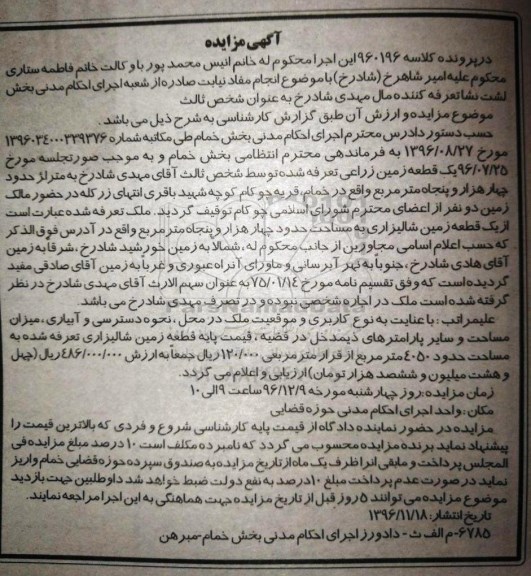 آگهی مزایده
درپرونده کلاسه ۹۶۰۱۹۶ این اجرا محکوم له خانم انیس محمد پور با وکالت خانم فاطمه ستاری
محکوم علیه امیر شاهرخ (شادرخ) با موضوع انجام مفاد نیابت صادره از شعبه اجرای احکام مدنی بخش
لشت نشا تعرفه کننده مال مهدی شادرخ به عنوان شخص ثالث
موضوع مزایده و ارزش آن طبق گزارش کارشناسی به شرح ذیل می باشد.
حسب دستور دادرس محترم اجرای احکام مدنی بخش خمام طی مکاتبه شماره ۱۳۹۶۰۳۴۰۰۰۳۳۹۳۷۶
مورخ ۱۳۹۶/۰۸/۲۷ به فرماندهی محترم انتظامی بخش خمام و به موجب صورتجلسه مورخ
۹۶/۰۷/۲۵ یک قطعه زمین زراعی تعرفه شده توسط شخص ثالث آقای مهدی شادرخ به متراژ حدود
چهار هزار و پنجاه متر مربع واقع در خمام، قریه چوکام کوچه شهید باقری انتهای زرکله در حضور مالک
زمین دو نفر از اعضای محترم شورای اسلامی چوکام توقیف گردید. ملک تعرفه شده عبارت است
از یک قطعه زمین شالیزاری به مساحت حدود چهار هزار و پنجاه متر مربع واقع در آدرس فوق الذکر
که حسب اعلام اسامی مجاورین از جانب محکوم له، شمالا به زمین خورشید شادرخ، شرقا به زمین
آقای هادی شادرخ، جنوبا به نهر آبرسانی و ماورای آن راه عبوری و غرباً به زمین آقای صادقی مفید
گردیده است که وفق تقسیم نامه مورخ ۷۵/۰۱/۱۴ به عنوان سهم الارث آقای مهدی شادرخ در نظر
گرفته شده است ملک در اجاره شخصی نبوده و در تصرف مهدی شادرخ می باشد.
علیهمراتب: با عنایت به نوع کاربری و موقعیت ملک در محل، نحوه دسترسی و آبیاری، میزان
مساحت و سایر پارامترهای ذیمدخل در قضیه، قیمت پایه قطعه زمین شالیزاری تعرفه شده به
مساحت حدود ۴۰۵۰ متر مربع از قرار متر مربعی ۱۲۰/۰۰۰ ریال جمعا به ارزش ۴۸۶/۰۰۰/۰۰۰ ریال (چهل
و هشت میلیون و ششصد هزار تومان) ارزیابی و اعلام می گردد.
زمان مزایده: روز چهارشنبه مورخه ۹۶/۱۲/۹ ساعت ۹ الی ۱۰
مکان: واحد اجرای احکام مدنی حوزه قضایی
مزایده در حضور نماینده دادگاه از قیمت پایه کارشناسی شروع و فردی که بالاترین قیمت را
پیشنهاد نماید برنده مزایده محسوب می گردد که نامبرده مکلف است ۱۰ درصد مبلغ مزایده فی
المجلس پرداخت و مابقی انرا ظرف یک ماه از تاریخ مزایده به صندوق سپرده حوزه قضایی خمام واریز
نماید در صورت عدم پرداخت مبلغ ۱۰ درصد به نفع دولت ضبط خواهد شد داوطلبین جهت بازدید
موضوع مزایده می توانند ۵ روز قبل از تاریخ مزایده جهت هماهنگی به این اجرا مراجعه نمایند.
تاریخ انتشار: ۱۳۹۶/۱۱/۱۸
۶۷۸۵-م الف ث - دادورز اجرای احکام مدنی بخش خمام-مبرهن